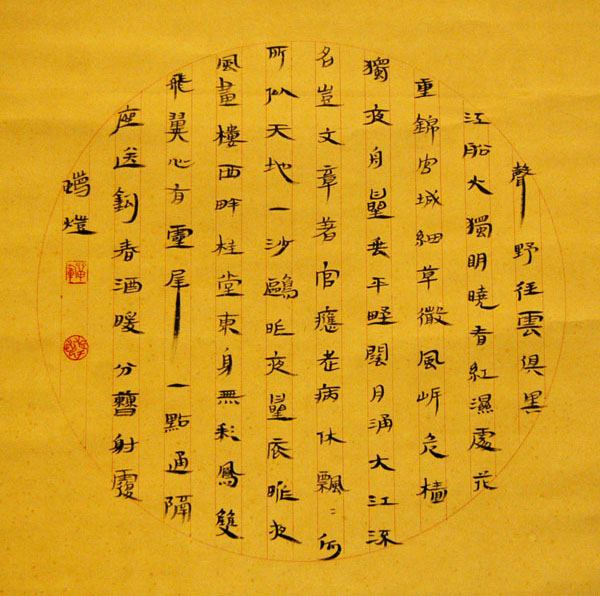 聲野径雲俱黑
江船火獨明曉看紅濕處花
重錦官城細草微風岸危檣
獨夜舟星垂平野闊月涌大江流
名豈文章著官應老病休飄〻何
所似天地一沙鷗昨夜星辰昨夜
風畫樓西畔桂堂東身無彩鳳雙
飛翼心有靈犀一點通隔
座送鈎春酒暖分曹射覆